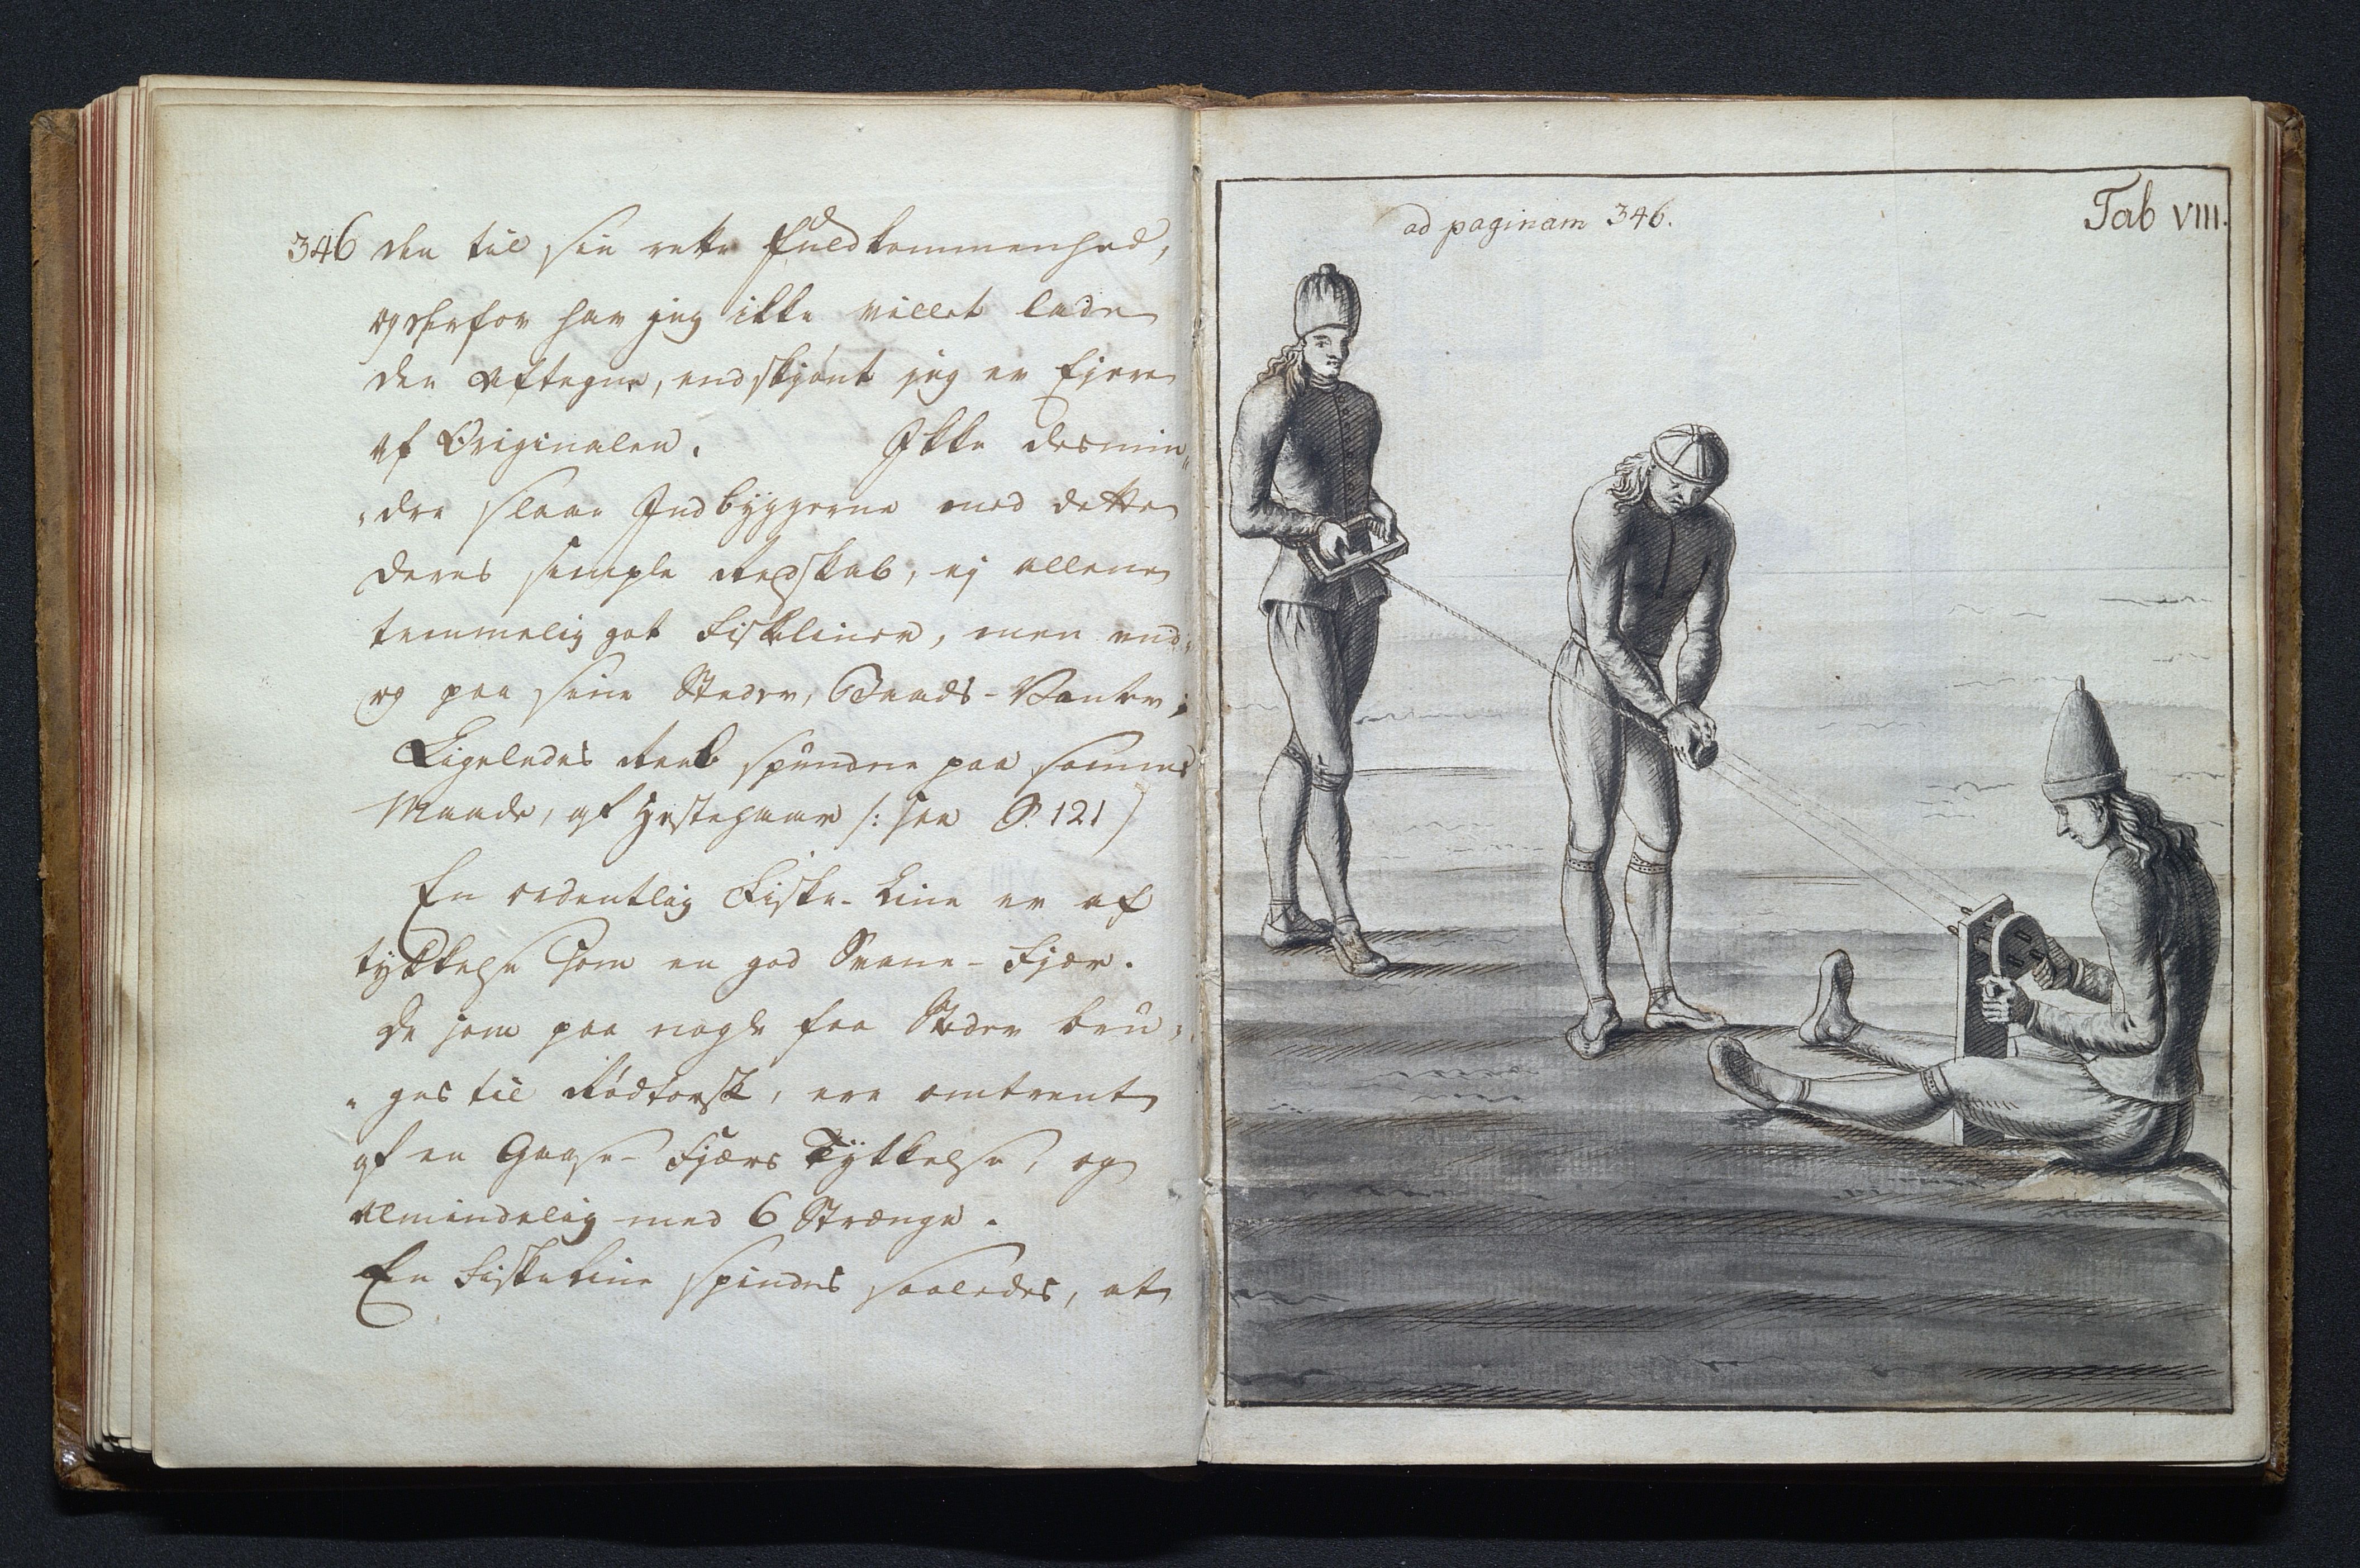 346 den til sin rette Fuldkommenhed,
og derfor har jeg ikke villet lade
den Aftegne, endskjönt jeg er Ejere
af Originalen. Ikke desmin„
„dre slaae Indbyggerne med dette
deres simple Redskab, ej allene
temmelig got Fiskliner, men end„
og paa sine Steder, Baads-Vanter;
Ligeledes Reeb spundne paa samme
Maade, af Hestehaar /: see §. 121)
En ordentlig Fiske-Line er af
tykkelse som en god Svane-Fjær.
de som paa nogle faa Steder bru„
„ges til Rödtorsk, ere omtrent
af en Gaase-Fjærs Tykkelse, og
almindelig med 6 Strænge.
En Fiskeline spindes saaledes, at
ad paginam 346.
Tab VIII.